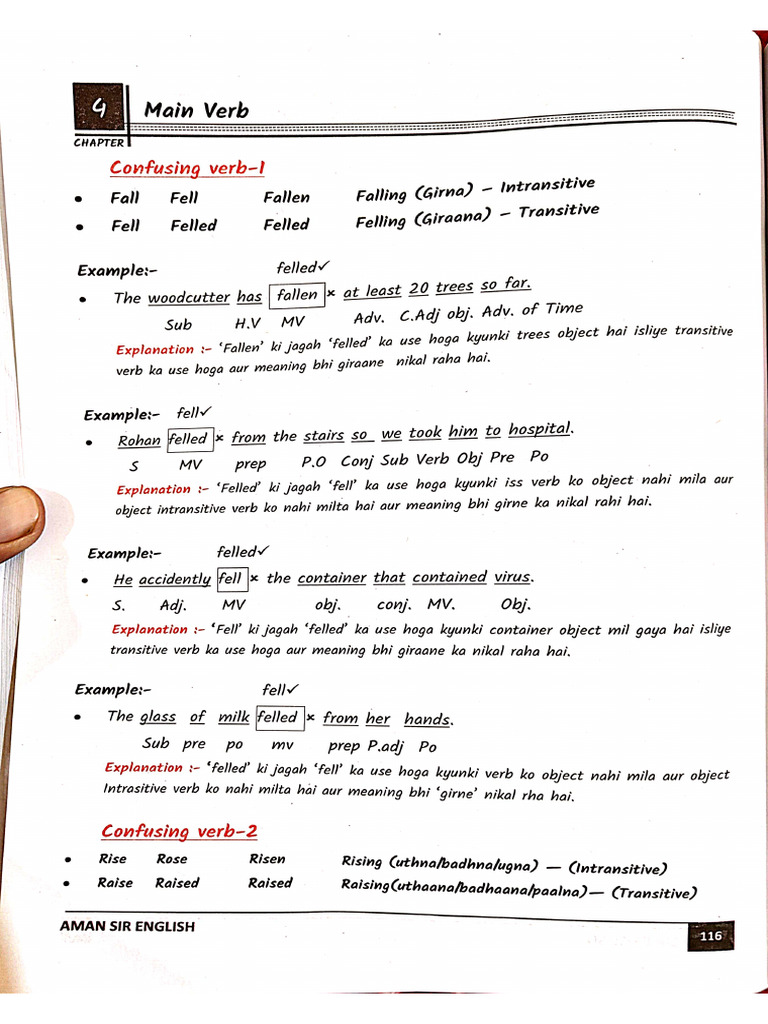 4
Main Verb
CHAPTER
Confusing verb-1
• Fall Fell Fallen Falling (Girna) – Intransitive
• Fell Felled Felled Felling (Giraana) – Transitive
Example:- felled✓
• The woodcutter has fallen × at least 20 trees so far.
Sub H.V MV Adv. C.Adj obj. Adv. of Time
Explanation :- ‘Fallen’ ki jagah ‘felled’ ka use hoga kyunki trees object hai isliye transitive
verb ka use hoga aur meaning bhi giraane nikal raha hai.
Example:- fell✓
• Rohan felled × from the stairs so we took him to hospital.
S MV prep P.O Conj Sub Verb Obj Pre Po
Explanation :- ‘Felled’ ki jagah ‘fell’ ka use hoga kyunki iss verb ko object nahi mila aur
object intransitive verb ko nahi milta hai aur meaning bhi girne ka nikal rahi hai.
Example:- felled✓
• He accidently fell × the container that contained virus.
S. Adj. MV obj. conj. MV. Obj.
Explanation :- ‘Fell’ ki jagah ‘felled’ ka use hoga kyunki container object mil gaya hai isliye
transitive verb ka use hoga aur meaning bhi giraane ka nikal raha hai.
Example:- fell✓
• The glass of milk felled × from her hands.
Sub pre po mv prep P.adj Po
Explanation :- ‘felled’ ki jagah ‘fell’ ka use hoga kyunki verb ko object nahi mila aur object
Intrasitive verb ko nahi milta hai aur meaning bhi ‘girne’ nikal rha hai.
Confusing verb-2
• Rise Rose Risen Rising (uthna/badhna/ugna) — (Intransitive)
• Raise Raised Raised Raising(uthaana/badhaana/paalna)— (Transitive)
AMAN SIR ENGLISH
116